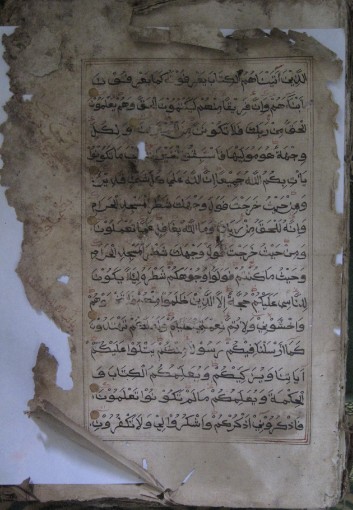 الذين آتيناهم الكتاب يعرفونه كما يعرفون
أبناءهم وإن فريقا منهم ليكتمون الحق وهم يعلمون
الحق من ربك فلا تكونن من ولكل
وجهة هو موليها فاستبقوا ما تكونوا
يأت بكم الله جميعا إن الله على كل شيء قدير
ومن حيث خرجت فول وجهك شطر المسجد الحرام
وإنه للحق من ربك وما الله بغافل عما تعملون
ومن حيث خرجت فول وجهك شطر المسجد الحرام
وحيث ما كنتم فولوا وجوهكم شطره لئلا يكون
للناس عليكم حجة إلا الذين ظلموا منهم فلا تخشوهم
واخشوني ولأتم نعمتي عليكم ولعلكم تهتدون
كما أرسلنا فيكم رسولا منكم يتلوا عليكم
آياتنا ويزكيكم ويعلمكم الكتاب و
الحكمة ويعلمكم ما لم تكونوا تعلمون
فاذكروني أذكركم واشكروا لي ولا تكفرون